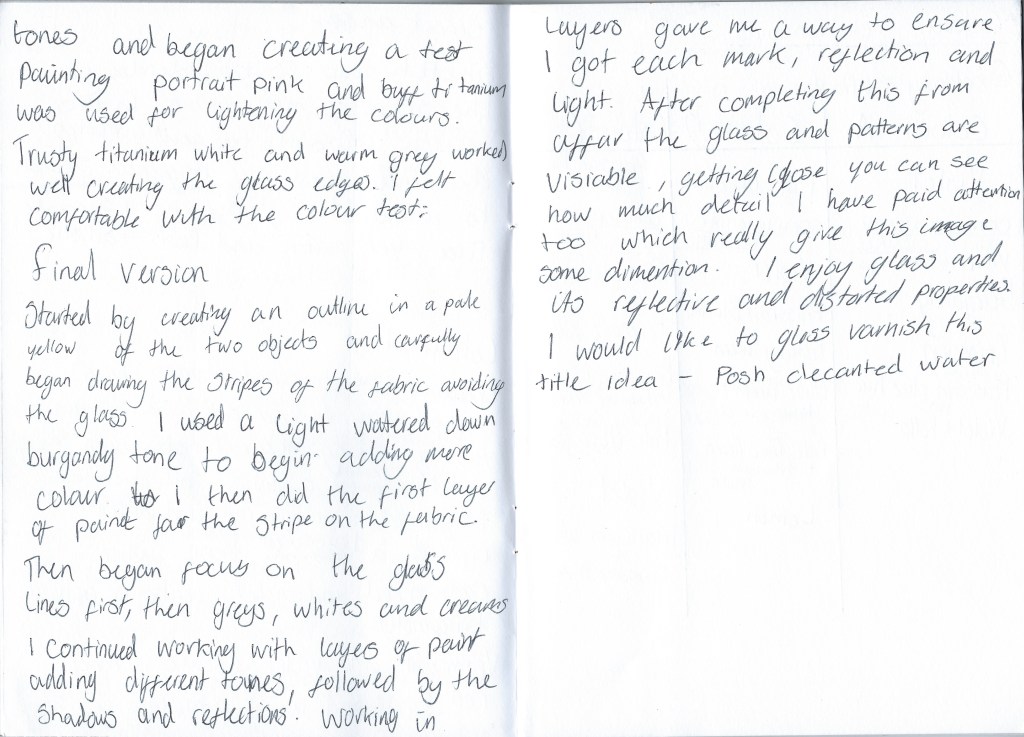 tones and began creating a test
painting portrait pink and buff titanium
was used for lightening the colours.
Trusty titanium white and warm grey worked
well creating the glass edges. I felt
comfortable with the colour test.
final version
Started by creating an outline in a pale
yellow of the two objects and carfully
began drawing the stripes of the fabric avoiding
the glass. I used a light watered down
burgandy tone to begin adding more
colour. I then did the first layer
of paint for the stripe on the fabric.
Then began focus on the glass
lines first, then greys, whites and creams
I continued working with layes of paint
adding different tones, followed by the
shadows and reflections. Working in
layers gave me a way to ensure
I got each mark, reflection and
light. After completing this from
affar the glass and patterns are
visiable, getting close you can see
how much detail I have paid attention
too which really give this image
some dimention. I enjoy glass and
its reflective and distorted properties.
I would like to gloss varnish this
title idea - Posh decanted water